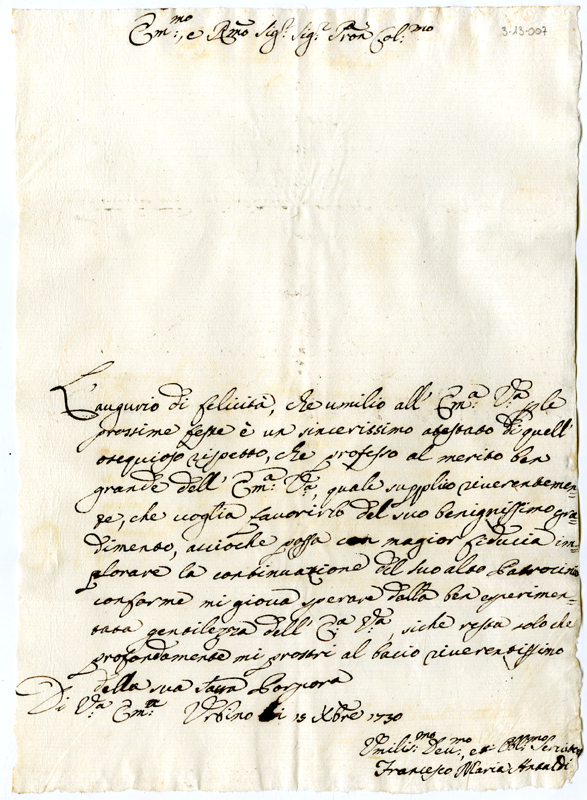 Em:mo, e R:mo Sig:r Sig:r Pron Col:mo
3-13-007
L'augurio di felicità, che umilio all' Em:a V:ra p le
prossime feste è un sincerissimo atestato di quell'
ossequioso rispetto, che professo al merito ben
grande dell' Em:a V:ra, quale supplio riverentemen
te, che voglia favorirlo del suo benignissimo gra
dimento, accioche possa con magior fiducia im
plorare la continuazione del suo alto Patrocinio
conforme mi giova sperare dalla ben esperimen=
tata gentilezza dell' E:a V:ra, siche resta solo che
profondamente mi prostri al bacio riverentissimo
della sua sacra Porpora
Di V:ra Em:za Urbino li 15 Xbre 1730
Umilis:mo Dev:mo, et Obl:mo Servitore
Francesco Maria Antaldi